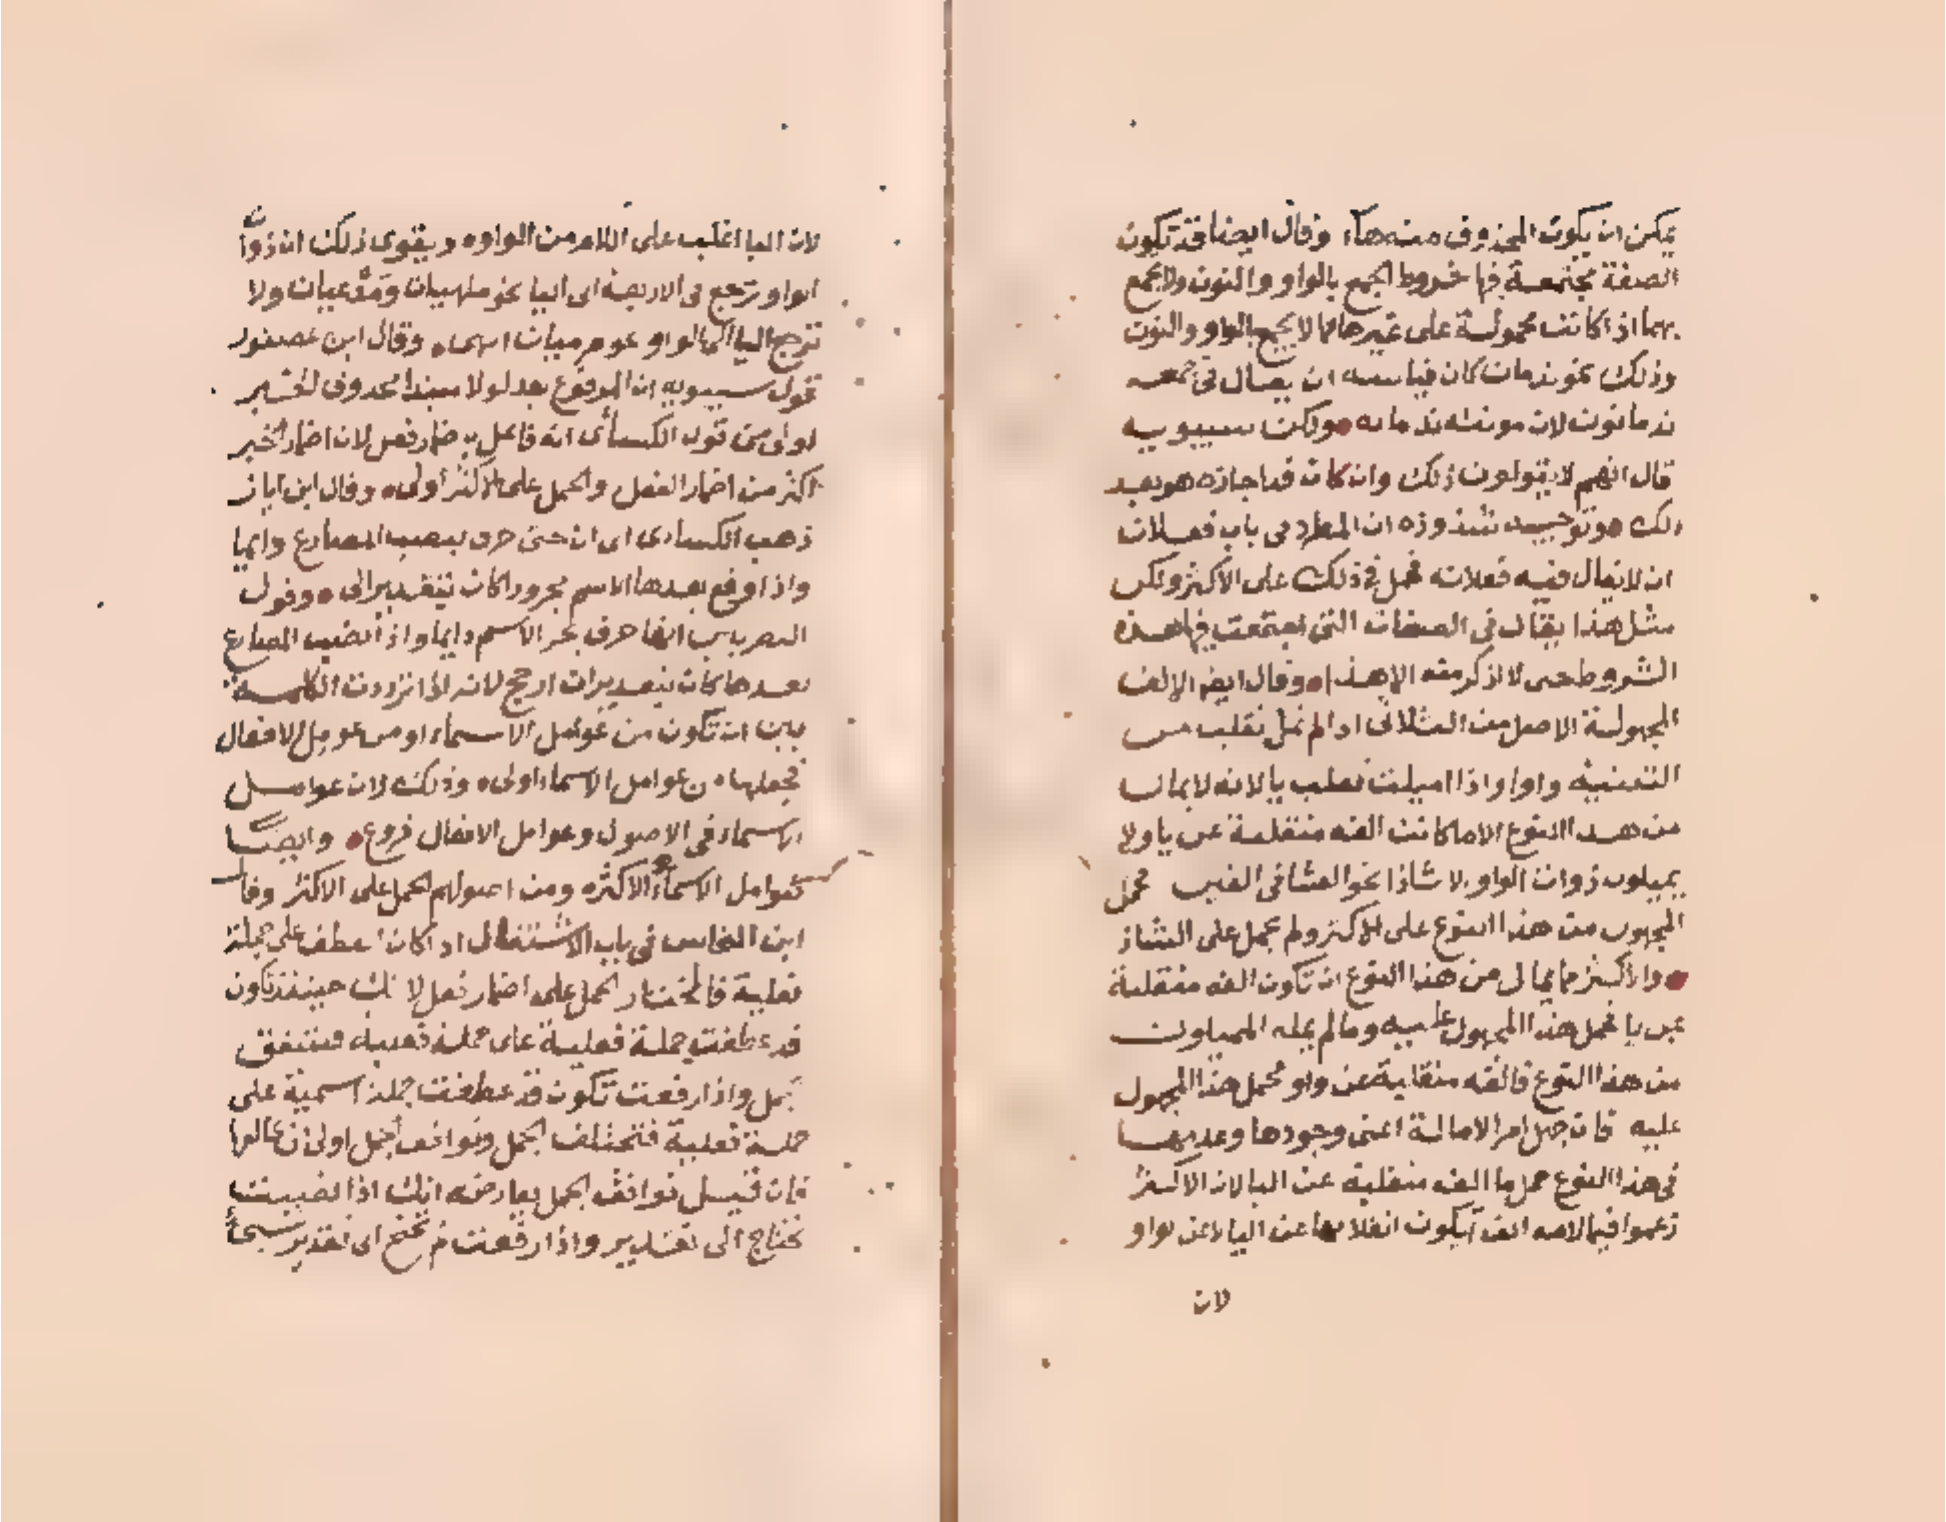 يمكن ان يكون المحذوف منه هاء وقال ايضا قد تكون
الصفة مجتمعة فيها شروط الجمع بالواو والنون ولا يجمع
بهما اذا كانت محمولة على غيرها مما لا يجمع بالواو والنون
وذلك نحو ندمان كان قياسه ان يقال في جمعه
ندمانون لان مونثه ندمانه ولكن سيبويه
قال انهم لا يقولون ذلك وان كان قد اجازه هو بعد
ذلك هو توجيه شذوذه ان المطرد في باب فعلان
ان لا يقال فيه فعلانه فحمل في ذلك على الاكثر ولكن
مثل هذا يقال في الصفات التي اجتمعت فيها هذه
الشروط حتى لا اذكر منه الا هذا وقال ايضا الالف
المجهولة الاصل من الثلاثي اذا لم تمل تقلب في
التثنية واوا واذا اميلت تقلب يا لانه لا يمال
من هذا النوع الا ما كانت الفه منقلبة عن يا ولا
يميلون ذوات الواو الا شاذا نحو العشا في الفيء فحمل
المجهول من هذا النوع على الاكثر ولم يحمل على الشاذ
والاكثر مما يمال من هذا النوع ان تكون الفه منقلبة
عن يا فحمل هذا المجهول عليه وما لم يمله المميلون
من هذا النوع فالفه منقلبة عن واو فحمل هذا المجهول
عليه فان جهل امر الامالة اعني وجودها وعدمها
في هذا النوع حمل ما الفه منقلبة عن اليا لان الاكثر
زعموا فيما لامه الف ان يكون انقلابها عن اليا لا عن الواو
لان
لان اليا اغلب على اللام من الواو ويقوى ذلك ان ذوات
الواو ترجع في الاربعة الى اليا نحو ملهيان ومدعيان ولا
ترجع اليا الى الواو نحو مرميان انتهى وقال ابن عصفور
قول سيبويه ان المرفوع بعد لولا مبتدا محذوف الخبر
اولى من قول الكسائي انه فاعل باضمار فعل لان اضمار الخبر
اكثر من اضمار الفعل والحمل على الاكثر اولى وقال ابن اياز
ذهب الكسائي الى ان حتى حرف ينصب المضارع دايما
واذا وقع بعدها الاسم مجرورا كان بتقدير الى وقول
البصريين انها حرف يجر الاسم دايما واذا نصب المضارع
بعدها كان بتقدير ان ارجح لانه اذا ترددت الكلمة
بين ان تكون من عوامل الاسماء او من عوامل الافعال
فجعلها من عوامل الاسماء اولى وذلك لان عوامل
الاسماء هي الاصول وعوامل الافعال فروع وايضا
فعوامل الاسماء هي الاكثر ومن اصولهم الحمل على الاكثر وقال
ابن النحاس في باب الاشتغال اذا كان العطف على جملة
فعلية فالمختار الحمل على اضمار فعل لانك حينئذ تكون
قد عطفت جملة فعلية على جملة فعلية فتتفق
الجمل واذا رفعت تكون قد عطفت جملة اسمية على
جملة فعلية فتختلف الجمل وتوافق الجمل اولى من تخالفها
فان قيل توافق الجمل يعارضه انك اذا نصبت
تحتاج الى تقدير واذا رفعت لم تحتج الى تقدير شيئا